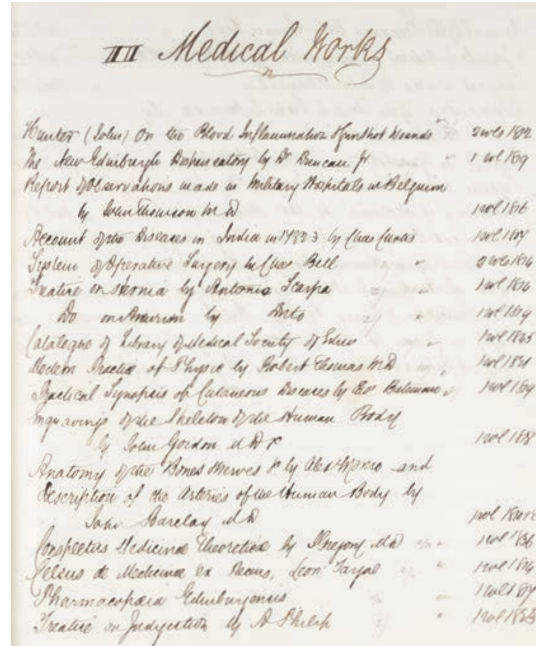 III Medical Works
Hunter (John) On the Blood Inflammation & Gunshot Wounds 2 vols 1812
The New Edinburgh Dispensatory by Dr Duncan Jr " 1 vol 1819
Report of Observations made in Military Hospitals in Belgium
by John Thomson M D 1 vol 1816
Account of the Diseases in India in 1782 3 by Chas Curtis 1 vol 1807
System of Operative Surgery by Chas Bell " " 2 vols 1814
Treatise on Hernia by Antonio Scarpa " " 1 vol 1814
Do on Aneurism by Ditto " " 1 vol 1819
Catalogue of Library of Medical Society of Edinr " 1 vol
Modern Practice of Physic by Robert Thomas M D " 1 vol 1821
Practical Synopsis of Cutaneous Diseases by Bateman 1 vol
Engravings of the Skeleton of the Human Body
by John Gordon M D &c 1 vol 1818
Anatomy of the Bones Nerves &c by Alexr Monro and
Description of the Arteries of the Human Body by
John Barclay M D 1 vol
Conspectus Medicinae Theoreticae by J Gregory M D " 1 vol 1836
Celsus de Medicina ex Recens, Leon: Targae " " 1 vol
Pharmacopoeia Edinburgensis " 1 vol
Treatise on Indigestion by A Philip " 1 vol